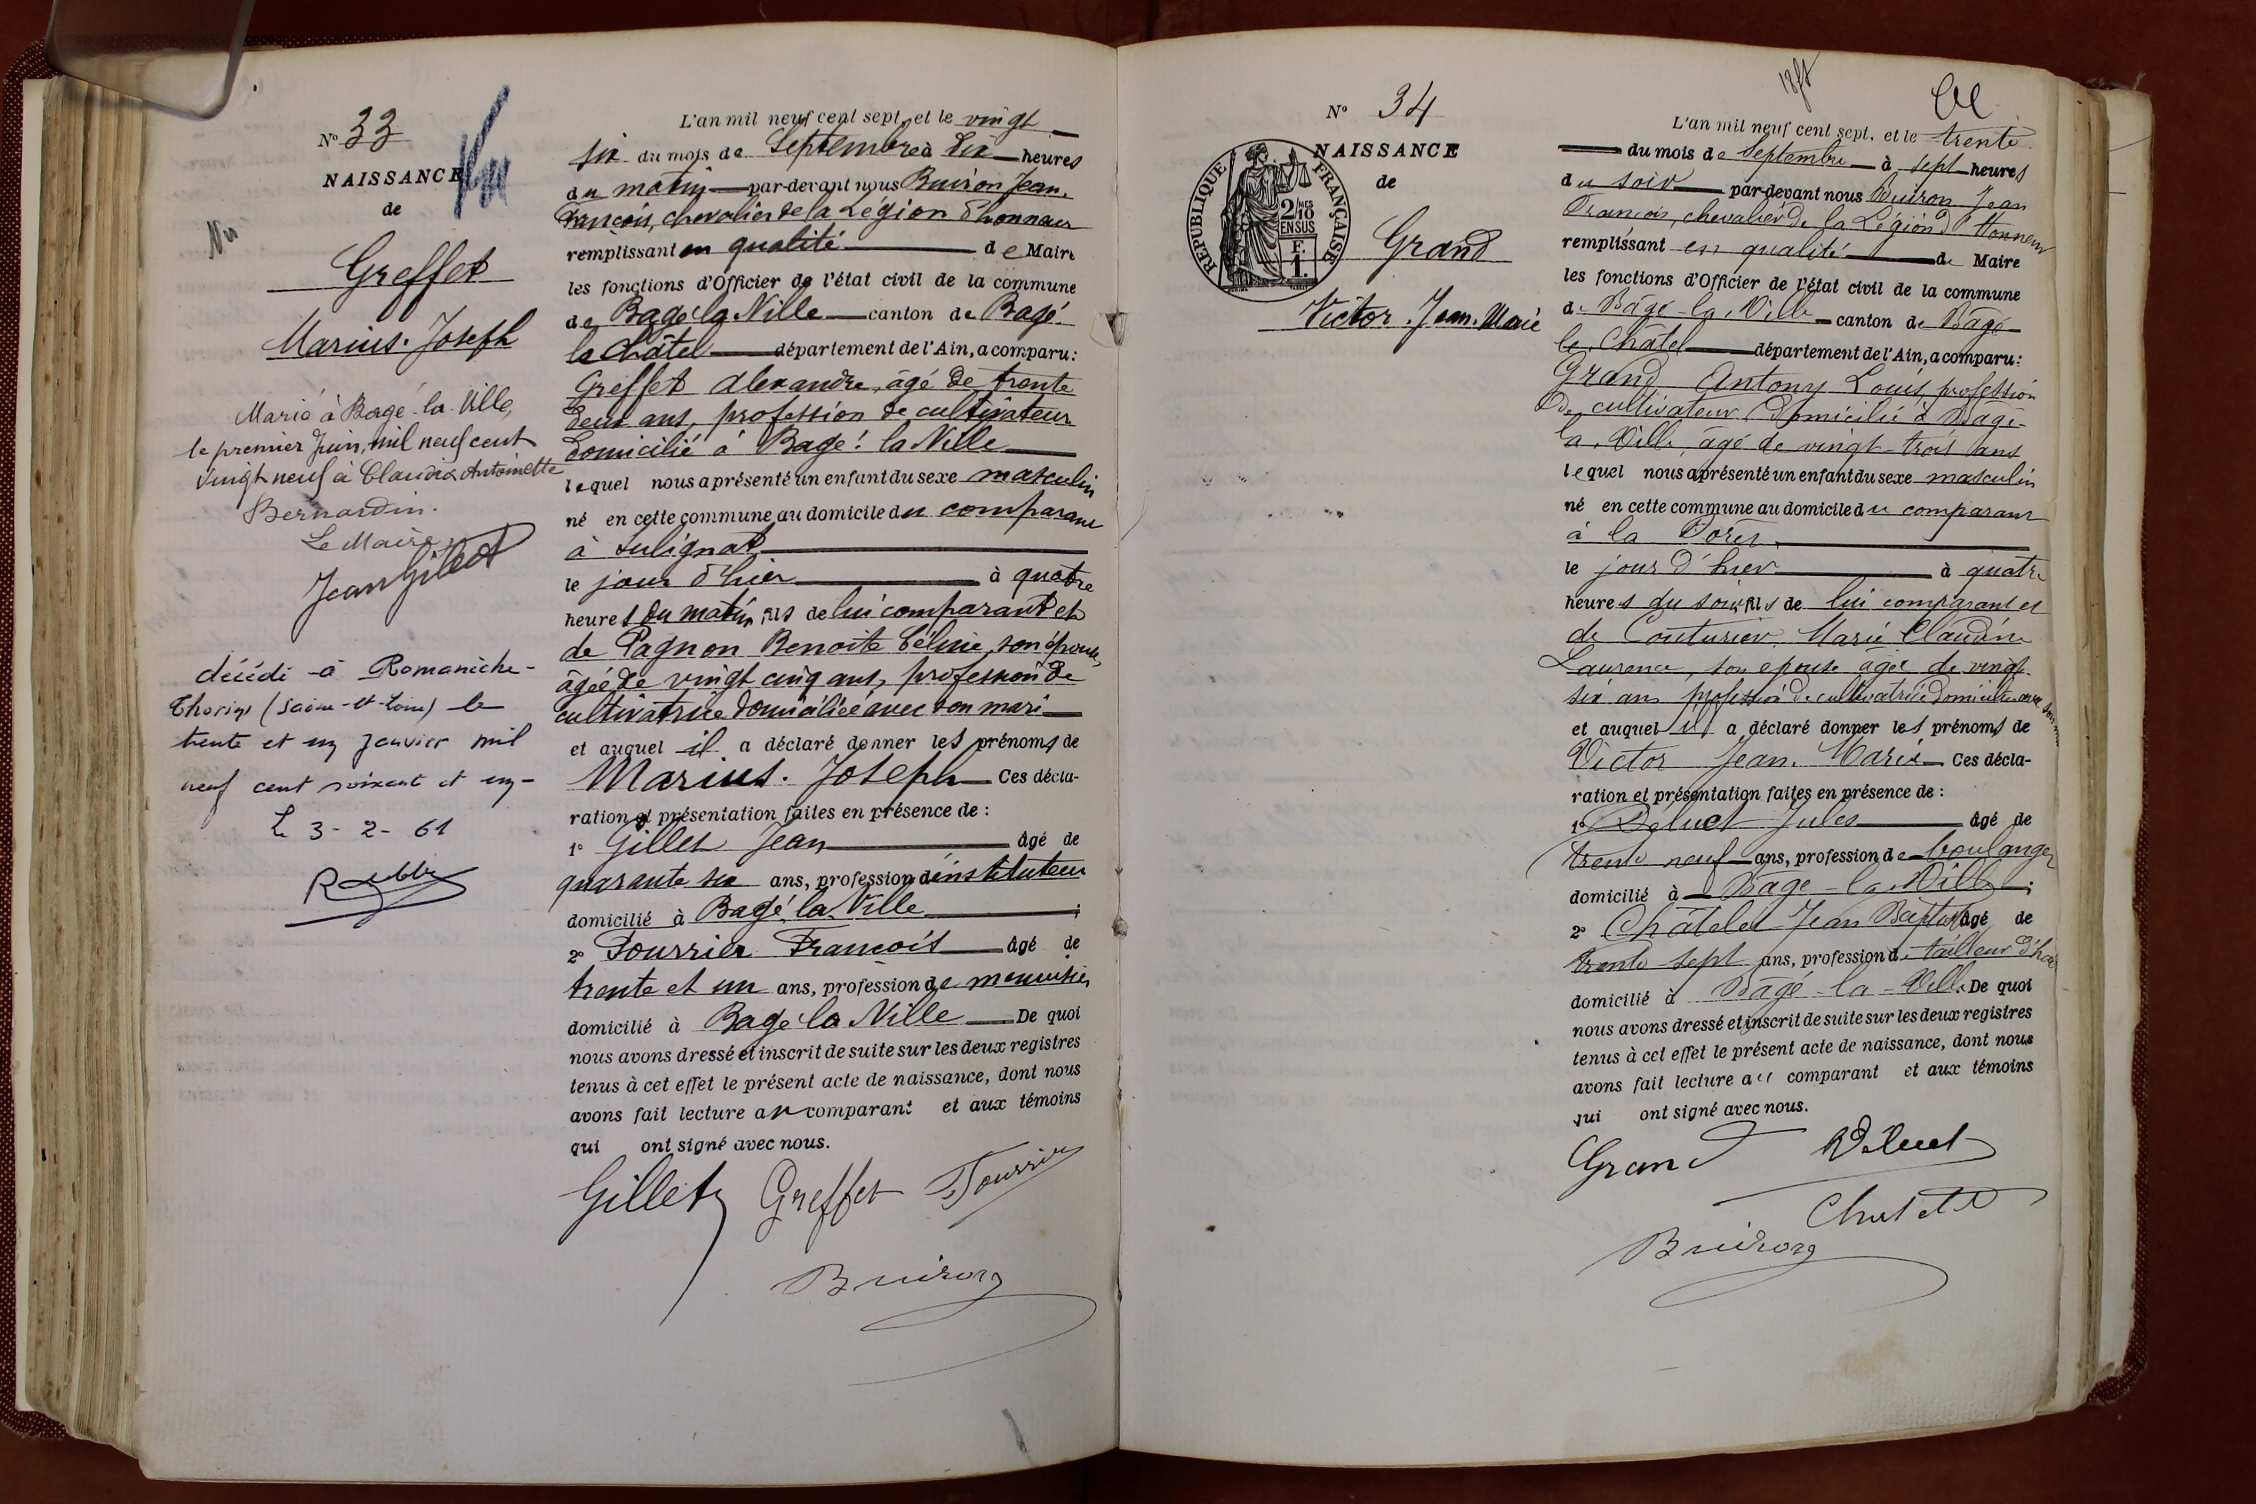 N° 33
NAISSANCE
de
Greffet
Marius. Joseph
Marié à Bagé-la-Ville,
le premier Juin, mil neuf cent
vingt neuf à Claudia Antoinette
Bernardin.
Le Maire,
Jean Gillet
décédé à Romanèche-
Thorins (Saône-et-Loire) le
trente et un Janvier mil
neuf cent soixante et un-
Le 3-2-61
L'an mil neuf cent sept, et le vingt
six du mois de Septembre à dix heures
du matin par-devant nous Buiron Jean.
François, chevalier de la Légion d'honneur
remplissant en qualité de Maire
les fonctions d'Officier de l'état civil de la commune
de Bagé la Ville canton de Bagé.
le Châtel département de l'Ain, a comparu:
Greffet Alexandre, âgé de trente
deux ans, profession de cultivateur
domicilié à Bagé-la Ville
lequel nous a présenté un enfant du sexe masculin
né en cette commune au domicile du comparant
à Sulignat
le jour d'hier à quatre
heures du matin, fils de lui comparant et
de Pagnon Benoite Céline, son épouse,
âgée de vingt cinq ans, profession de
cultivatrice domiciliée avec son mari
et auquel il a déclaré donner les prénoms de
Marius. Joseph Ces décla-
ration et présentation faites en présence de :
1° Gillet Jean âgé de
quarante six ans, profession d'instituteur
domicilié à Bagé la Ville ;
2° Fourrier François âgé de
trente et un ans, profession de menuisier
domicilié à Bagé la Ville De quoi
nous avons dressé et inscrit de suite sur les deux registres
tenus à cet effet le présent acte de naissance, dont nous
avons fait lecture au comparant et aux témoins
qui ont signé avec nous.
Gillet Greffet Fourrier
Buiron
N° 34
NAISSANCE
de
RÉPUBLIQUE FRANÇAISE
2/10 MES
EN SUS
F.
1.
Grand
Victor. Jean. Marie
L'an mil neuf cent sept, et le trente
du mois de Septembre à sept heures
du soir par-devant nous Buiron Jean
François, chevalier de la Légion d'Honneur
remplissant en qualité de Maire
les fonctions d'Officier de l'état civil de la commune
de Bâgé-la-Ville canton de Bâgé-
le-Châtel département de l'Ain, a comparu :
Grand Antony Louis, profession
de cultivateur domicilié à Bâgé-
la-Ville, âgé de vingt-trois ans
lequel nous a présenté un enfant du sexe masculin
né en cette commune au domicile du comparant
à la
le jour d'hier à quatre
heures du soir, fils de lui comparant et
de Couturier Marie Claudine
Laurence, son épouse âgée de vingt-
six ans profession de cultivatrice domiciliée avec son mari
et auquel il a déclaré donner les prénoms de
Victor Jean. Marie Ces décla-
ration et présentation faites en présence de :
1° Deluet Jules âgé de
trente neuf ans, profession de boulanger
domicilié à Bâgé-la-Ville ;
2° Châtelet Jean Baptiste âgé de
trente sept ans, profession de tailleur d'hab
domicilié à Bâgé-la-Ville De quoi
nous avons dressé et inscrit de suite sur les deux registres
tenus à cet effet le présent acte de naissance, dont nous
avons fait lecture au comparant et aux témoins
qui ont signé avec nous.
Grand Deluet
Chatelet
Buiron